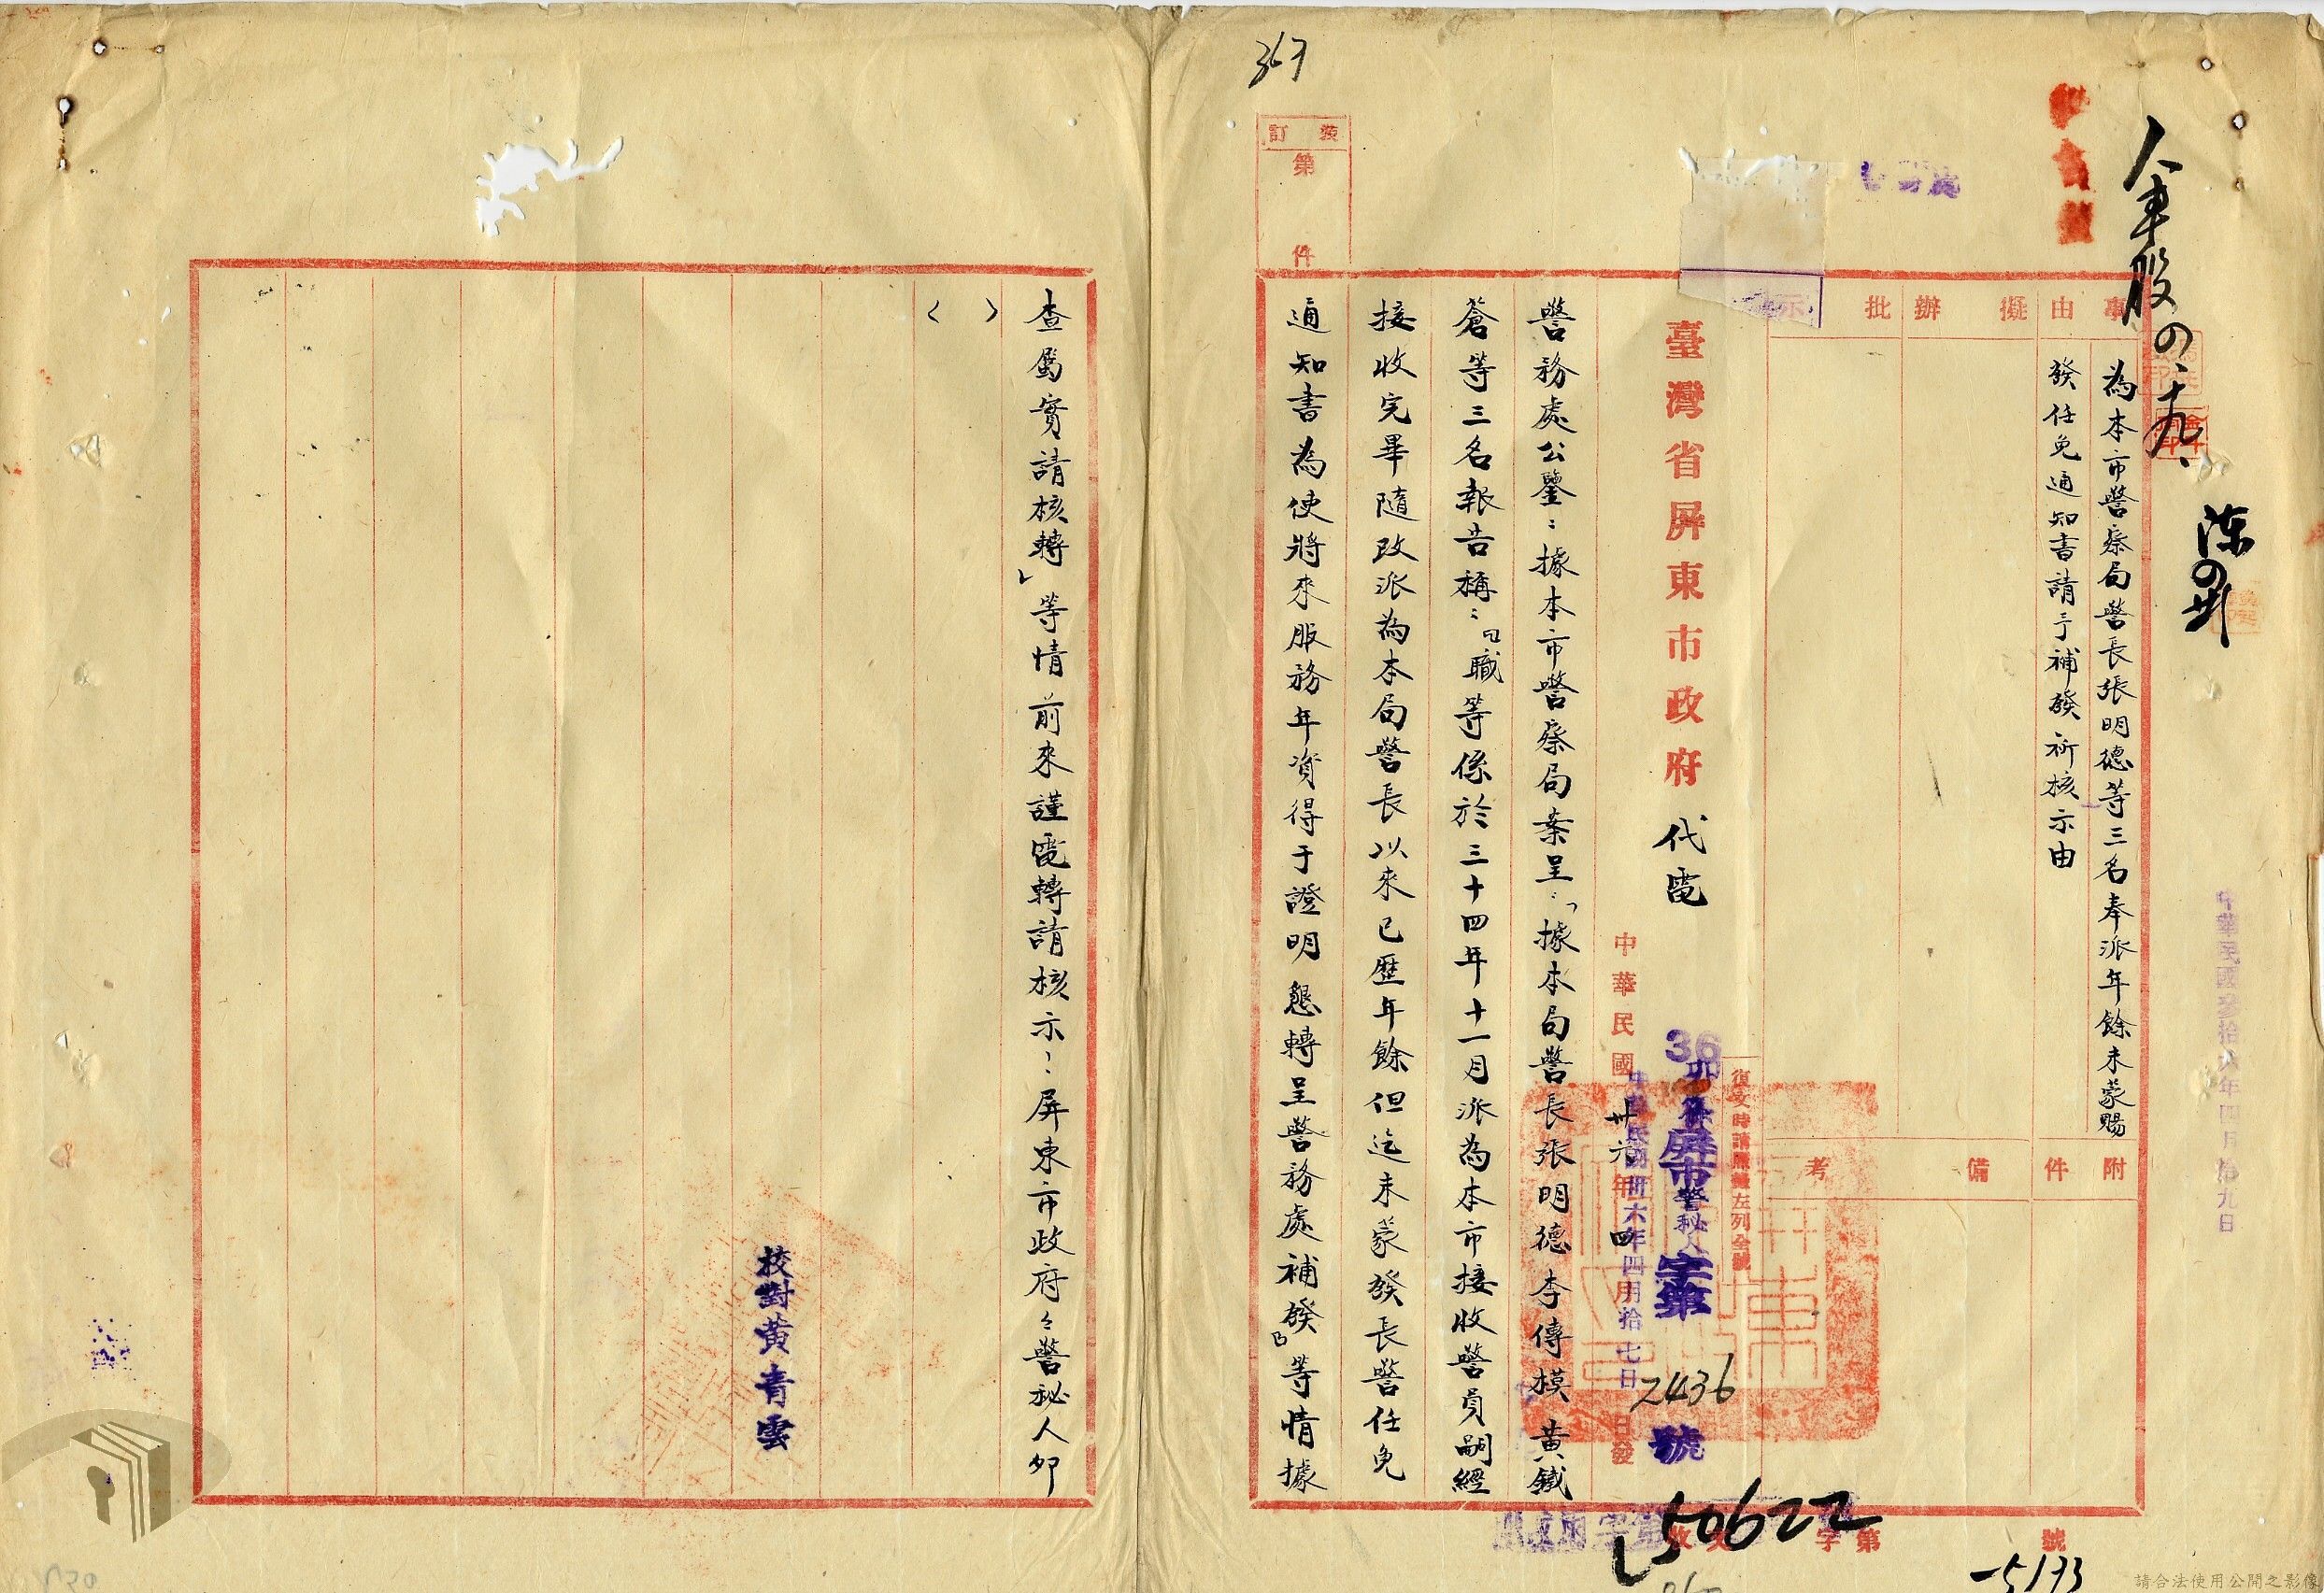 367
裝訂
第
件
人事股
四、十九、
陳
四卅
中華民國參拾六年四月拾九日
事由
擬辦
批示
為本市警察局警長張明德等三名奉派年餘未蒙賜
發任免通知書請予補發祈核示由
附件
備考
臺灣省屏東市政府代電
復文時請照錄左列全號
36卯
屏市警秘人字第
2436
號
中華民國卅六年四月 日發
中華民國卅六年四月拾七日
警務處公鑒：據本市警察局案呈：「據本局警長張明德李傳模黃鐵
蒼等三名報告稱：『職等係於三十四年十一月派為本市接收警員嗣經
接收完畢隨改派為本局警長以來已歷年餘但迄未蒙發長警任免
通知書為使將來服務年資得于證明懇轉呈警務處補發』等情據
查屬實請核轉」等情前來謹電轉請核示：屏東市政府々警秘人卯
（ ）
校對黃青雲
收文 字第 號
50622
5133
請合法使用公開之影像